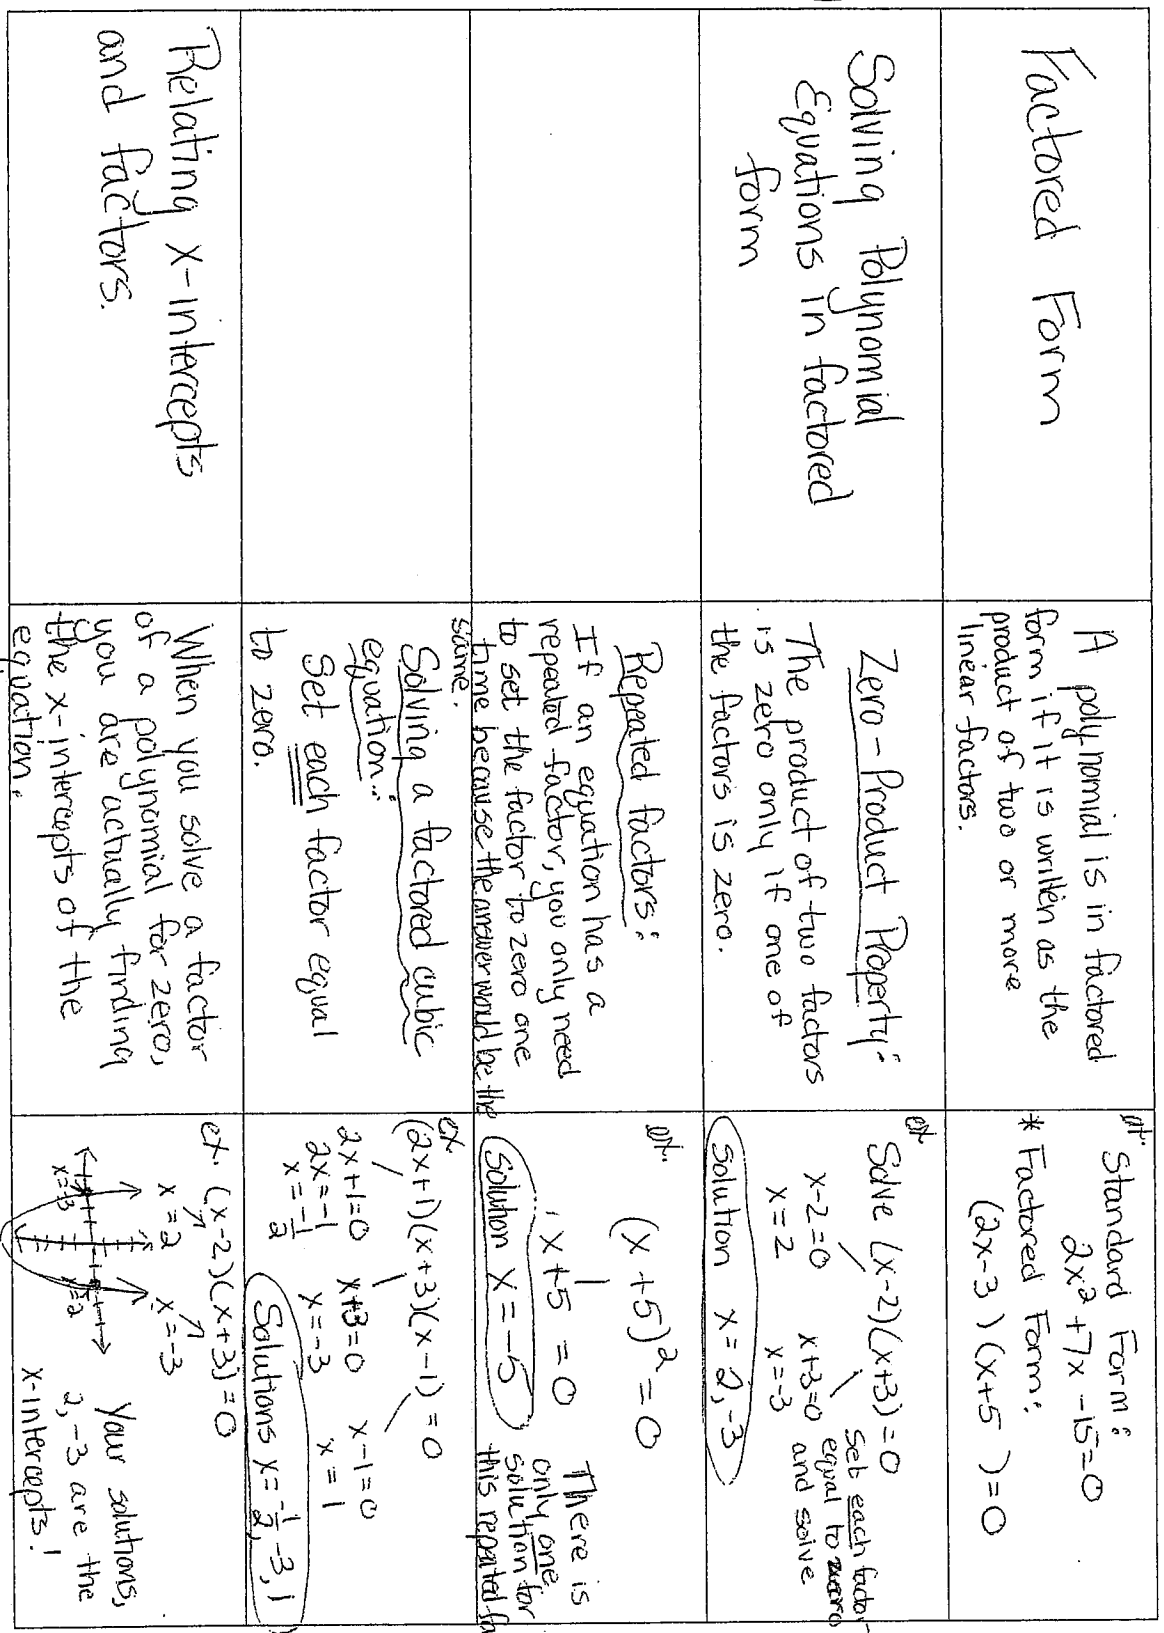 Factored Form
A polynomial is in factored
form if it is written as the
product of two or more
linear factors.
ex. Standard Form:
2x² + 7x - 15 = 0
* Factored Form:
(2x-3)(x+5)=0
Solving Polynomial
Equations in factored
form
Zero-Product Property:
The product of two factors
is zero only if one of
the factors is zero.
ex. Solve (x-2)(x+3)=0
set each factor
equal to zero
and solve
x-2=0 x+3=0
x=2 x=-3
Solution x=2,-3
Repeated factors:
If an equation has a
repeated factor, you only need
to set the factor to zero one
time because the answer would be the
same.
ex. (x+5)²=0
x+5=0
Solution x=-5
There is
only one
solution for
this repeated
Solving a factored cubic
equation:
Set each factor equal
to zero.
ex
(2x+1)(x+3)(x-1)=0
2x+1=0 x+3=0 x-1=0
2x=-1 x=-3 x=1
x=-1/2
Solutions x=-1/2,-3,1
Relating x-intercepts
and factors.
When you solve a factor
of a polynomial for zero,
you are actually finding
the x-intercepts of the
equation.
ex. (x-2)(x+3)=0
x=2 x=-3
x=-3 x=2
Your solutions,
2,-3 are the
x-intercepts!